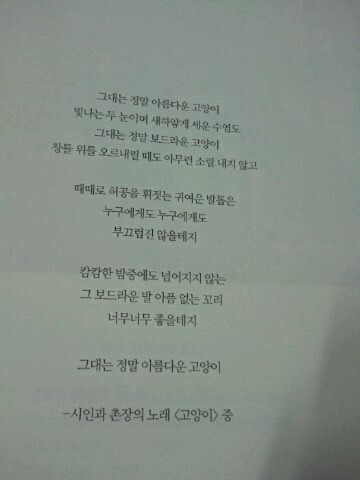 그대는 정말 아름다운 고양이
빛나는 두 눈이며 새하얗게 세운 수염도
그대는 정말 보드라운 고양이
창틀 위를 오르내릴 때도 아무런 소릴 내지 않고
때때로 허공을 휘젓는 귀여운 발톱은
누구에게도 누구에게도
부끄럽진 않을테지
캄캄한 밤중에도 넘어지지 않는
그 보드라운 발 아픔 없는 꼬리
너무너무 좋을테지
그대는 정말 아름다운 고양이
-시인과 촌장의 노래 <고양이> 중